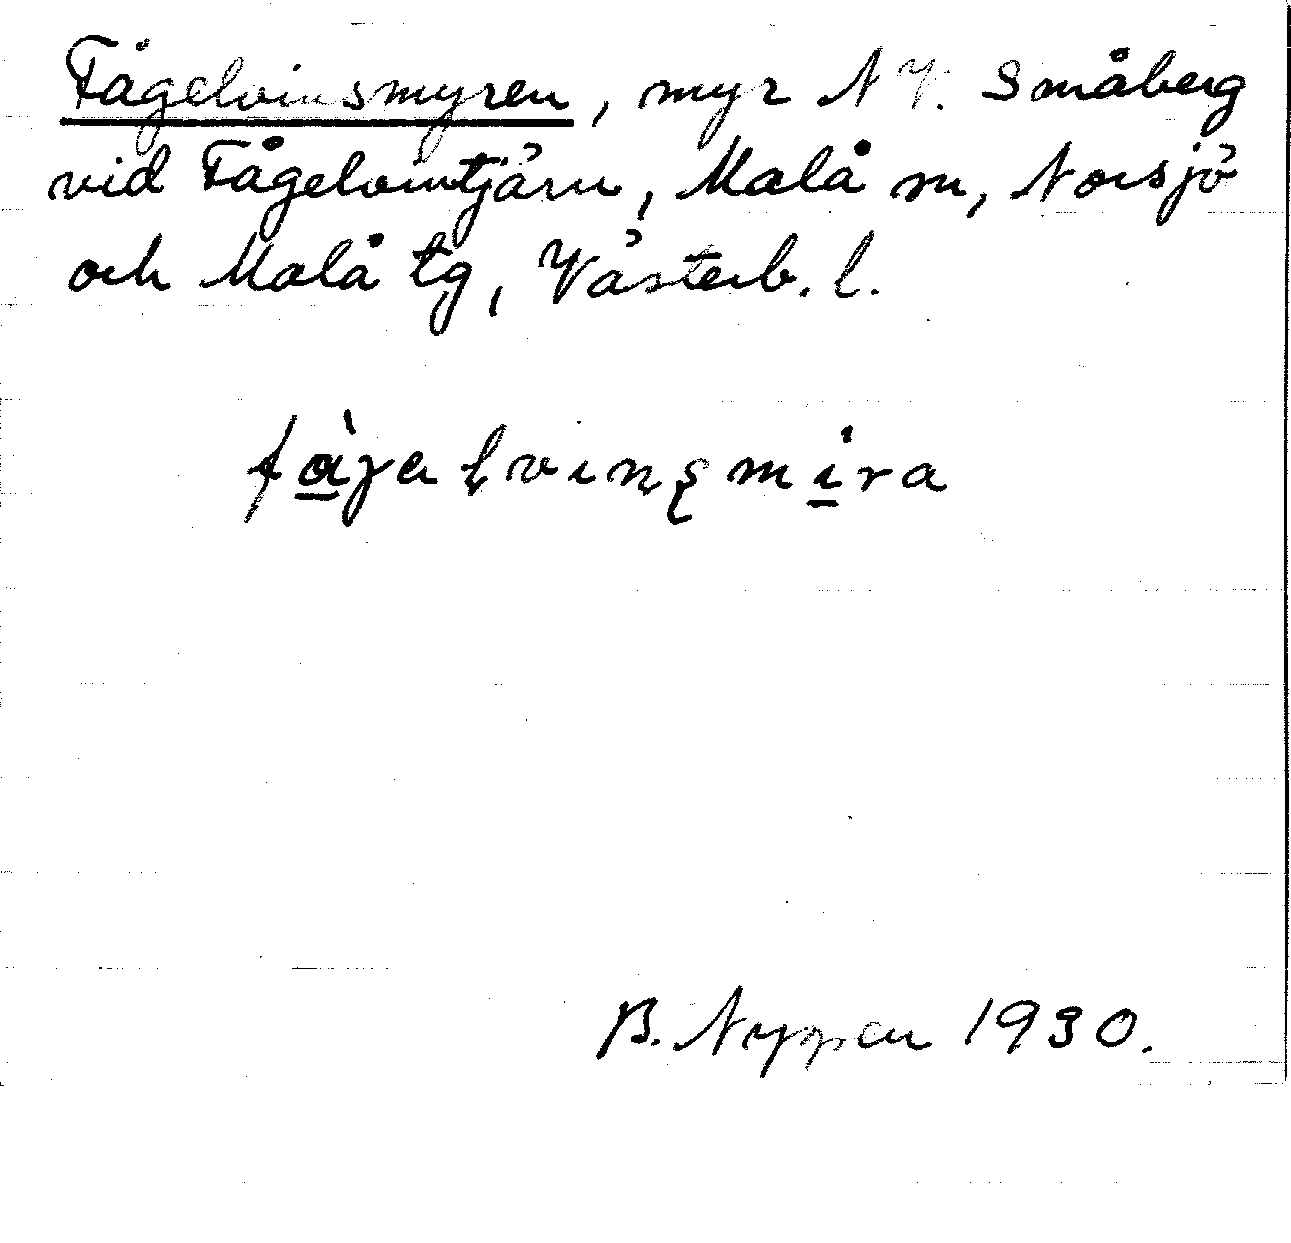 Fågelvinsmyren, myr NV. Småberg
vid Fågelvintjärn, Malå sn, Norsjö
och Malå tg, Västerb. l.
B. Nyman 1930.